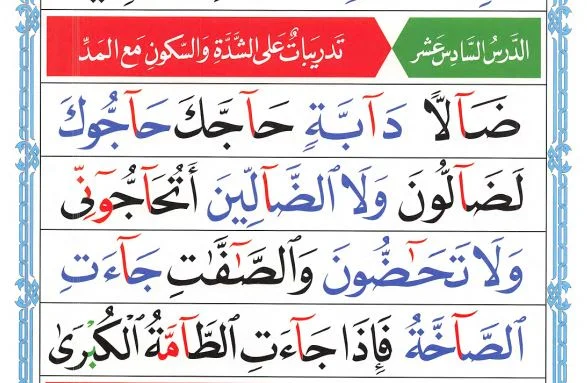 الدَّرْسُ السَّادِسَ عَشَر
تَدرِيبَاتٌ عَلَى الشَّدَّةِ وَالسّكونِ مَعَ المَدِّ
ضَآلًّا دَآبَّةٍ حَآجَّكَ حَآجُّوكَ
لَضَآلُّونَ وَلَا ٱلضَّآلِّينَ أَتُحَآجُّوٓنِّى
وَلَا تَحَٰٓضُّونَ وَٱلصَّٰٓفَّٰتِ جَآءَتِ
ٱلصَّآخَّةُ فَإِذَا جَآءَتِ ٱلطَّآمَّةُ ٱلْكُبْرَىٰ